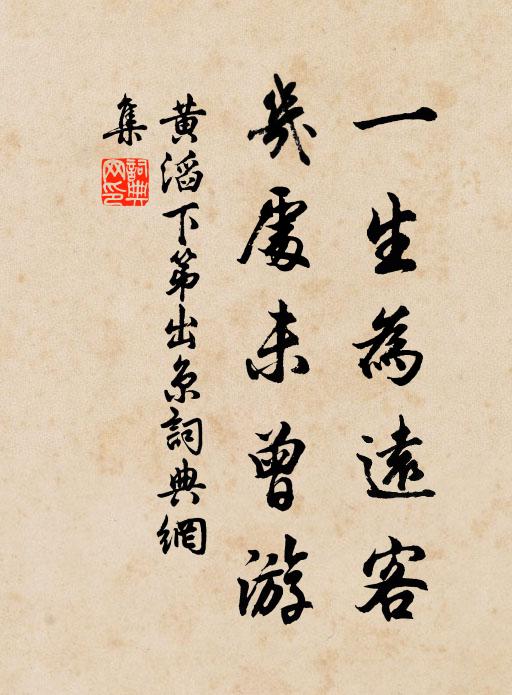 一生為遠客
幾處未曾游
黄滔下第出京詞典網
集
詞典網印